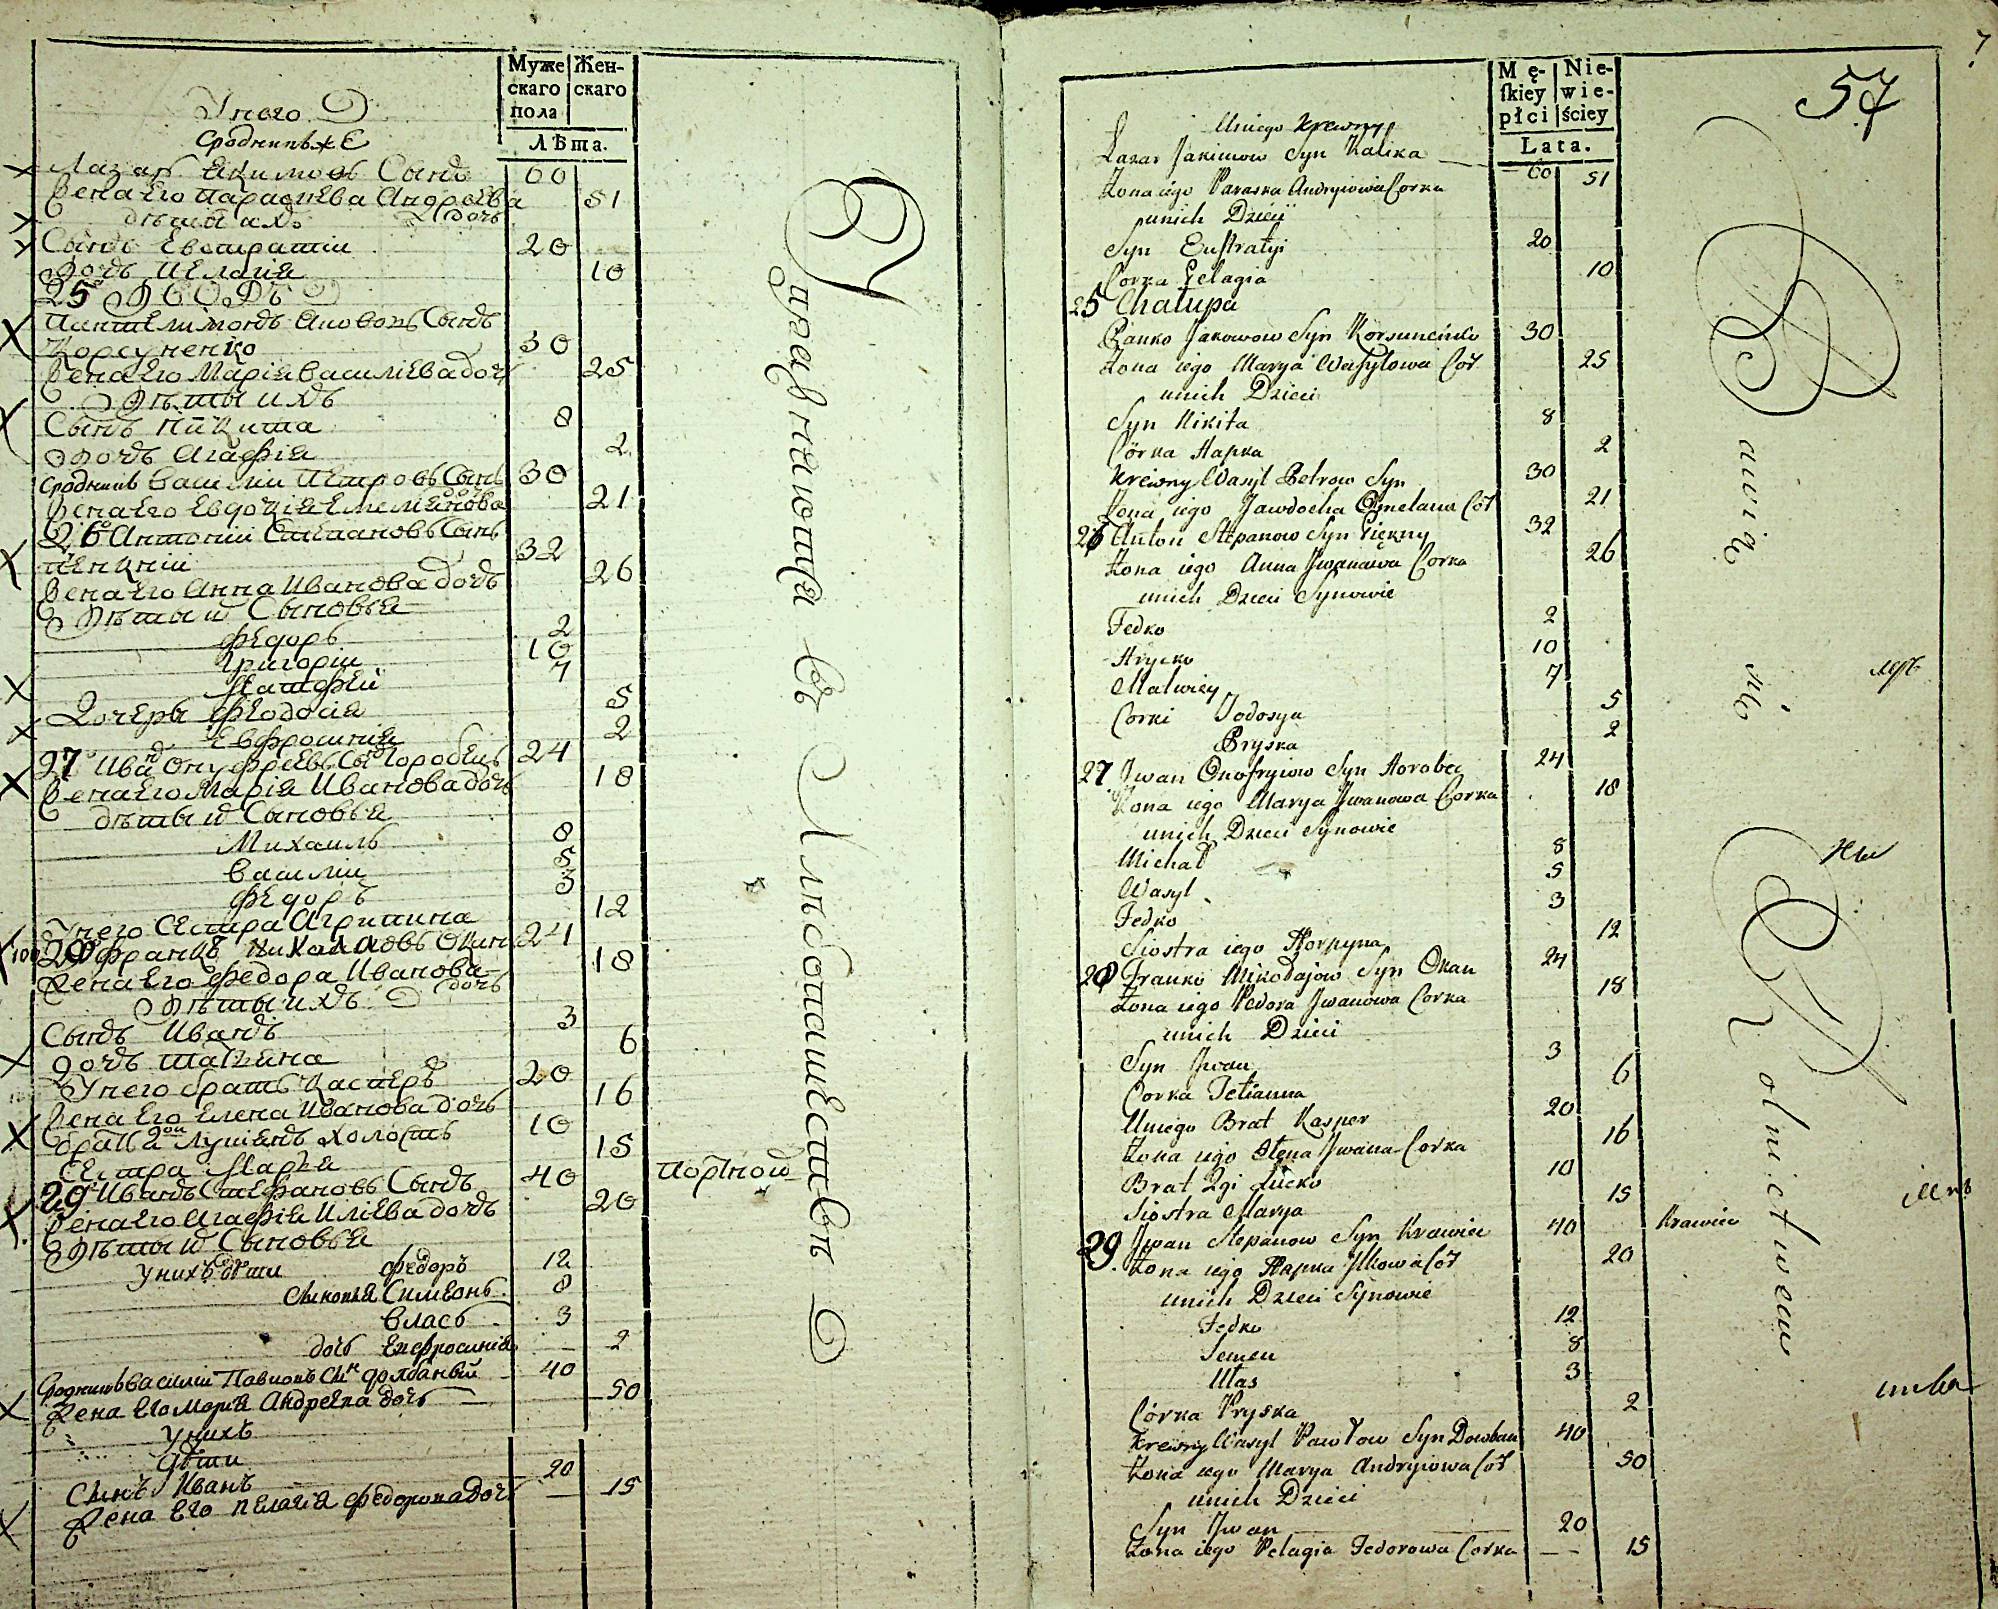 Муже
скаго
пола
Жен-
скаго
Лѣта.
У него
Сродникъ же
Лазар Якимовъ Сынъ 60
Жена Его Параскева Андреева дочь 51
дѣти ихъ
Сынъ Евстратии 20
Дочь Пелагiя 10
25 Дворъ
Пантелимонъ Якововъ Сынъ
Корсуненко 30
Жена Его Марiя Василiева дочь 25
Дѣти ихъ
Сынъ Никита 8
Дочь Агафiя 2
Сродникъ Василии Петровъ Сынъ 30
Жена Его Евдокiя Емелянова дочь 21
26 Антонии Степановъ Сынъ
Пенкнiи 32
Жена Его Анна Иванова дочь 26
Дѣти и Сыновья
Федоръ 2
Григорiи 10
Матфей 7
Дочеры Феодосiя 5
Евфросинiя 2
27 Иванъ Онуфреевъ Сынъ Горобецъ 24
Жена Его Марiя Иванова дочь 18
дѣти и Сыновья
Михаилъ 8
Василии 5
Федоръ 3
У него Сестра Агрипина 12
28 Францъ Николаовъ Окан 24
Жена Его Федора Иванова дочь 18
Дѣти ихъ
Сынъ Иванъ 3
Дочь Татьяна 6
У него братъ Касперъ 20
Жена Его Елена Иванова дочь 16
братъ 2ой Лукiянъ холостъ 10
Сестра Марья 15
29 Иванъ Стефановъ Сынъ 40 портной
Жена Его Агафiя Илiева дочь 20
Дѣти и Сыновья
у нихъ дѣти Федоръ 12
Сыновья Симеонъ 8
Власъ 3
дочь Ефросинiя 2
Сродникъ Василии Павловъ Сынъ Долбаный 40
Жена Его Марiя Андреева дочь 50
у нихъ
дѣти
Сынъ Иванъ 20
Жена Его Пелагiя Федорова дочь 15
Упражняются въ Хлебопашестве
57
7
Mę-
ſkiey
płci
Nie-
wie-
ściey
Lata.
U niego Krewny
Łazar Jakimow Syn Kalika 60
Żona iego Paraska Andryiowa Corka 51
u nich Dzieci
Syn Eustratyi 20
Corka Pelagia 10
25 Chałupa
Panko Jakowow Syn Korsuneńko 30
Żona iego Marya Wasylowa Cór 25
u nich Dzieci
Syn Nikita 8
Córka Hapka 2
Krewny Wasyl Petrow Syn 30
Żona iego Jawdocha Omelana Cór 21
26 Anton Stepanow Syn Piękny 32
Żona iego Anna Jwanowa Corka 26
u nich Dzieci Synowie
Fedko 2
Hrycko 10
Matwiey 7
Corki Fodosya 5
Pryska 2
27 Jwan Onofryiow Syn Horobec 24
Żona iego Marya Jwanowa Corka 18
u nich Dzieci Synowie
Michał 8
Wasyl 5
Fedko 3
Siostra iego Horpyna 12
28 Franko Mikołajow Syn Okan 24
Żona iego Fedora Jwanowa Corka 18
u nich Dzieci
Syn Jwan 3
Corka Tetianna 6
U niego Brat Kasper 20
Żona iego Ołena Jwana Corka 16
Brat 2gi Łucko 10
Siostra Marya 15
29 Jwan Stepanow Syn Krawiec 40 Krawiec
Żona iego Hapka Jlkowa Cór 20
u nich Dzieci Synowie
Fedko 12
Semen 8
Włas 3
Córka Pryska 2
Krewny Wasyl Pawłow Syn Dowban 40
Żona iego Marya Andryiowa Cór 50
u nich Dzieci
Syn Jwan 20
Żona iego Pelagia Fedorowa Corka 15
Bawią się Rolnictwem